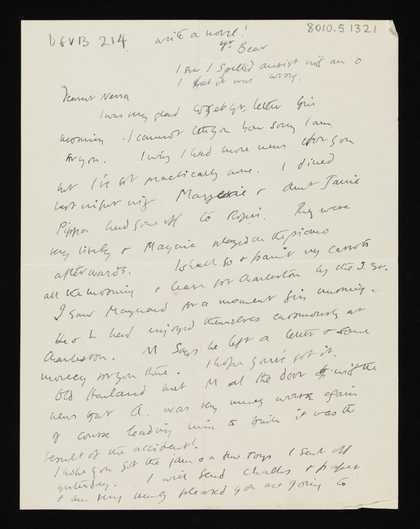 D&VB 214
8010.5.1321
write a novel!
yr Bear
I see I spelled ... with an o
I that is not wrong.
Dearest Nessa
I was very glad to get yr. letter this
morning. I cannot tell you how sorry I am
for you. I wish I had more news for you
but I've got practically none. I dined
last night with Marjorie & Aunt Janie
Pippa had gone off to Ropers. They were
very lively & Marjorie played on the piano
afterwards. I shall go & paint my carrots
all the morning & leave for Charleston by the 3.
I saw Maynard for a moment this morning.
he & L had enjoyed themselves enormously at
Charleston. M says he left a letter & some
money for you there. I hope you've got it.
Old Harland met M at the door with the
news that A. was very much worse again
of course leading him to think it was the
result of the accident!
I hope you got the jam & a few toys I sent off
yesterday. I will send chalks & paper
I am very much pleased you are going to